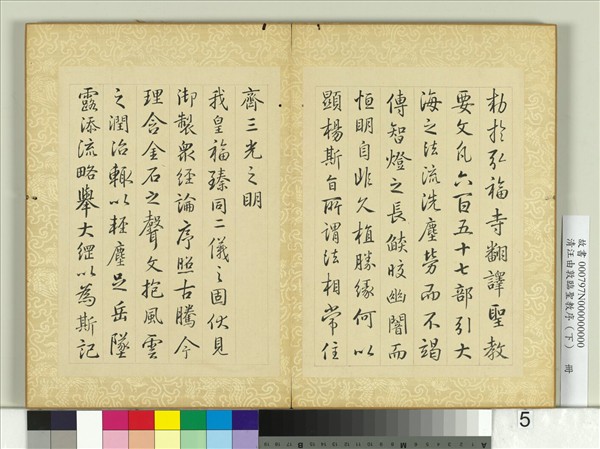 勅於弘福寺翻譯聖教
要文凡六百五十七部引大
海之法流洗塵勞而不竭
傳智燈之長燄皎幽闇而
恒明自非久植勝緣何以
顯揚斯旨所謂法相常住
齊三光之明
我皇福臻同二儀之固伏見
御製衆經論序照古騰今
理含金石之聲文抱風雲
之潤治輒以輕塵足岳墜
露添流略舉大綱以為斯記
故書000797N000000000
清汪由敦臨聖教序(下) 冊
5